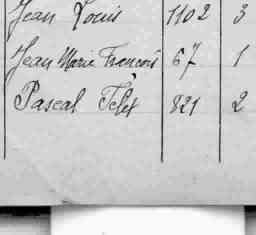 Jean Louis 1102 3
Jean Marie François 67 1
Pascal 821 2